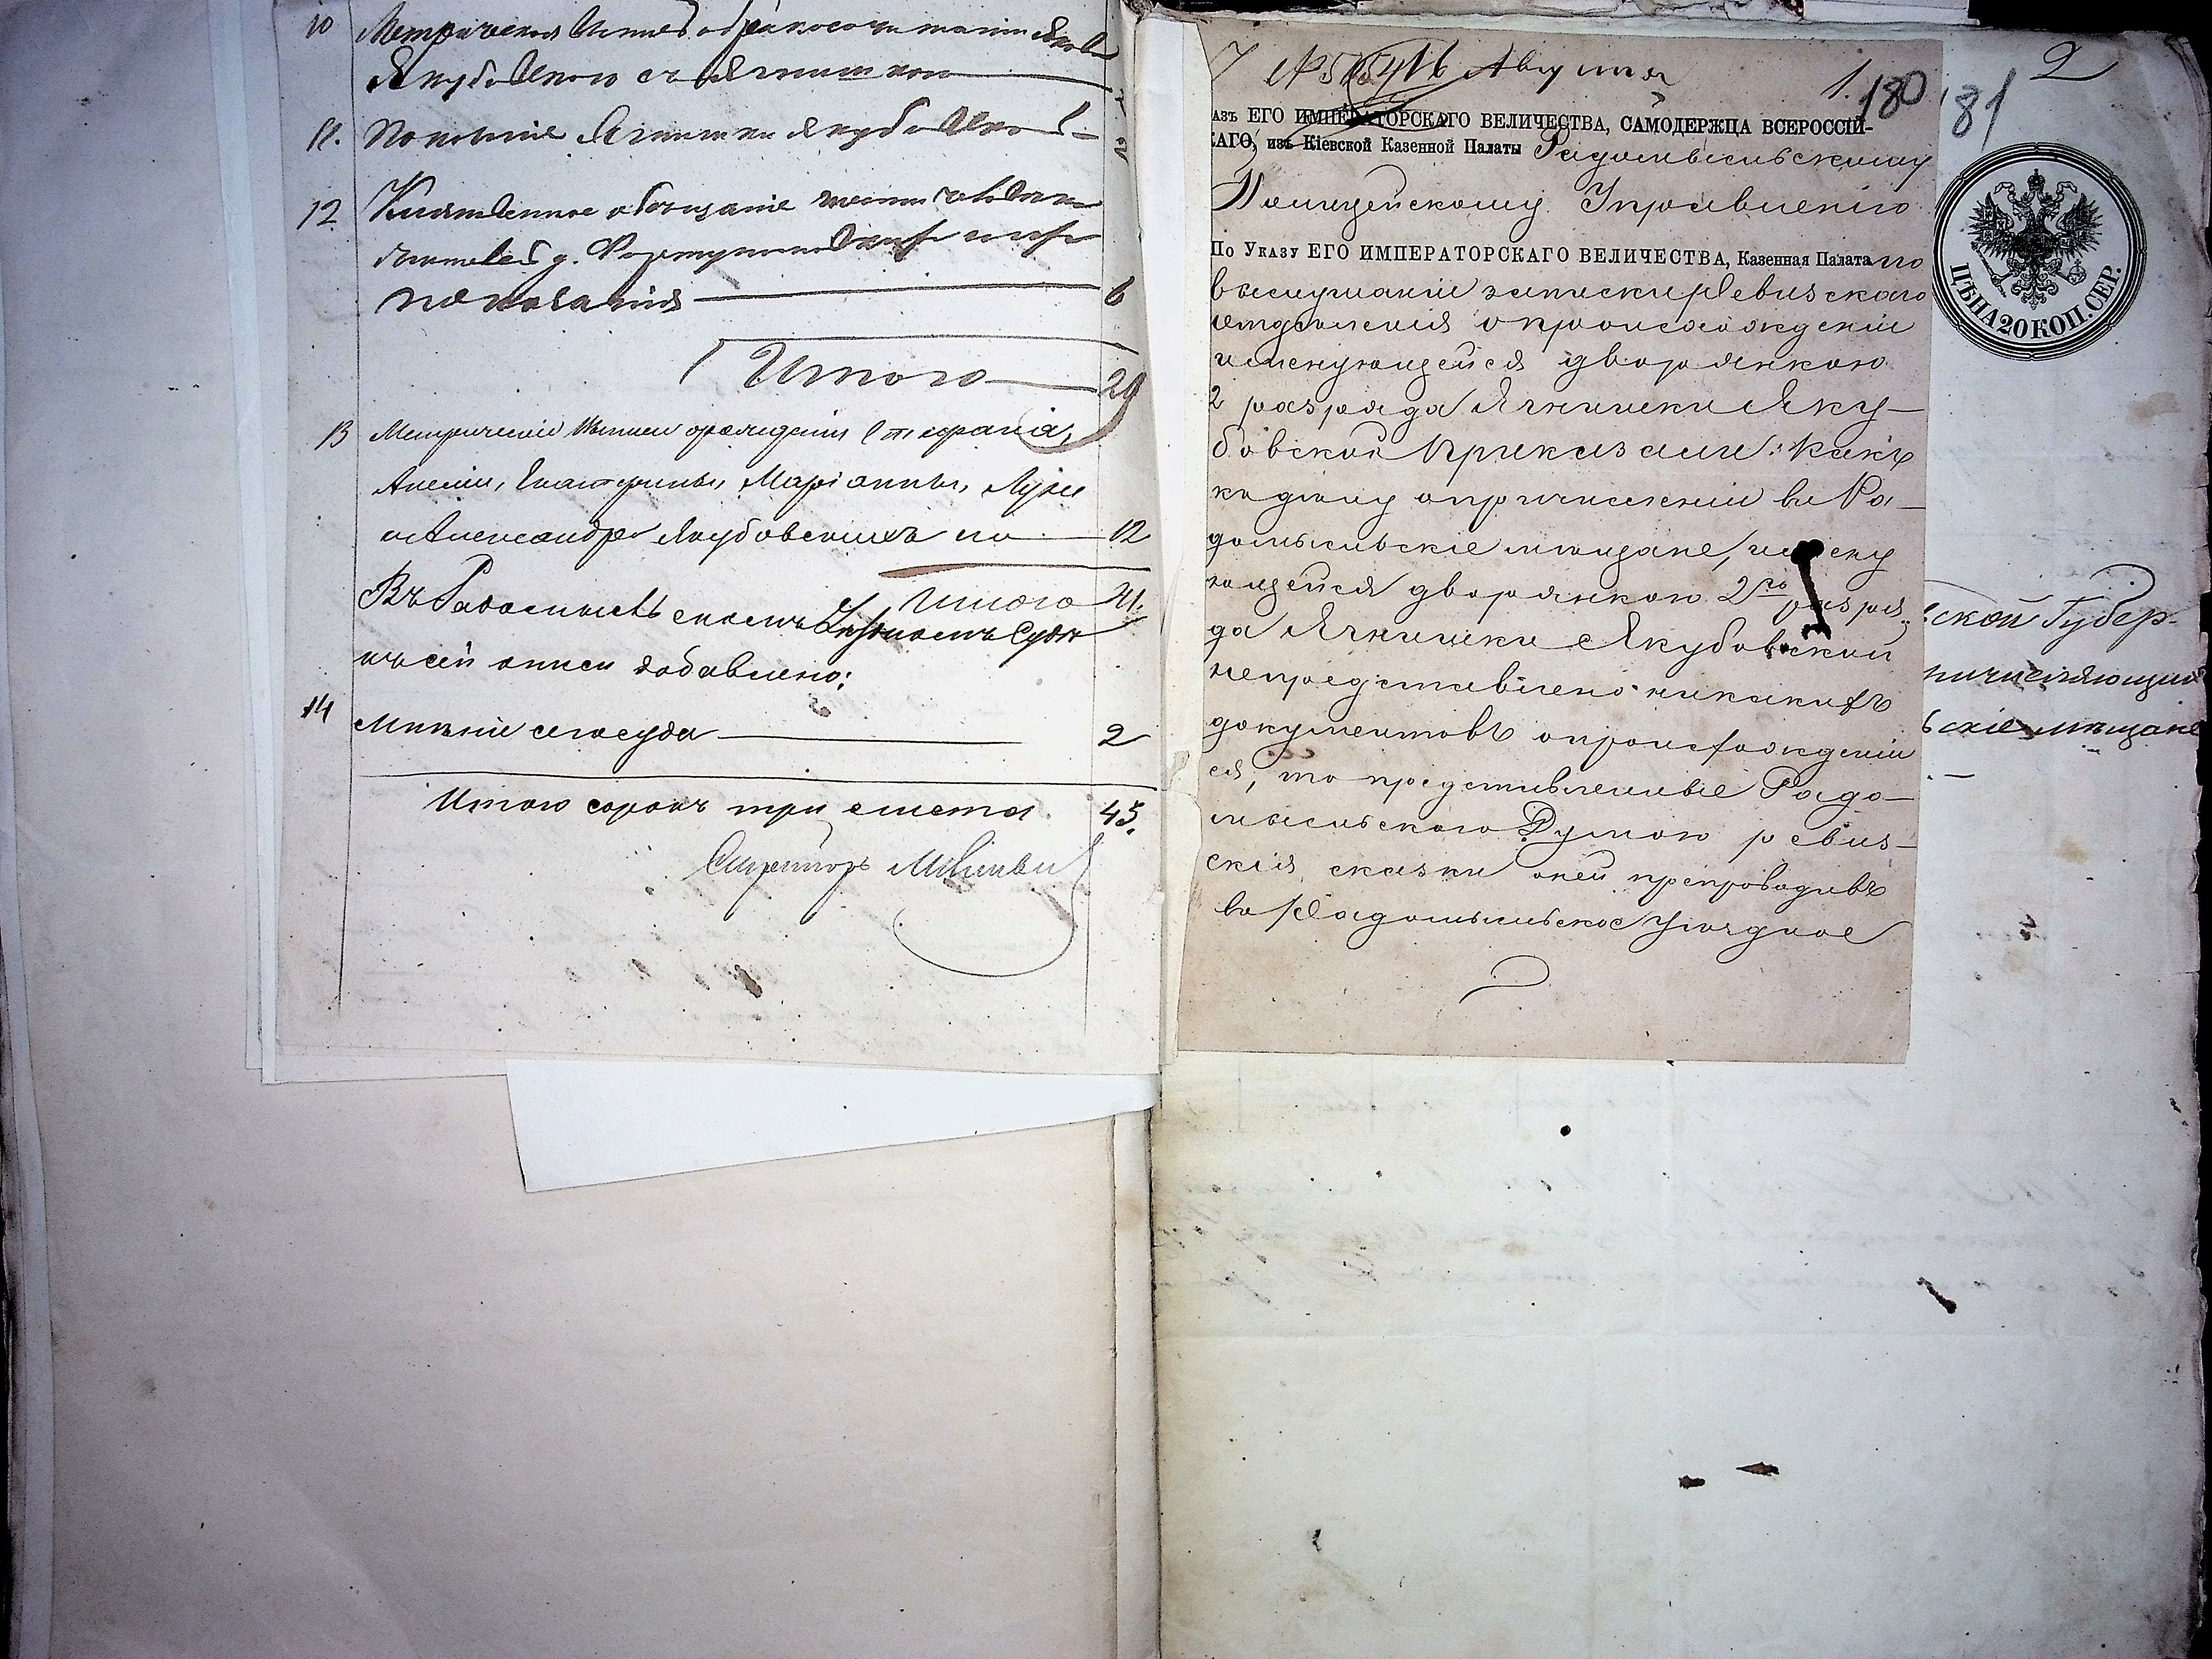 10 Метрическая выпись о бракосочетании Якова
Якубовскаго съ Ягнишкою
11. Показаніе Ягнишки Якубовской
12. Клятвенное обѣщаніе шести
показанія 6
Итого 29
13 Метрическіе выписи о рожденіи Стефанія,
Анеліи, Екатерины, Маріанны, Луки
и Александра Якубовскихъ на 12
Итого 41.
Въ Радомысльскомъ Уѣздномъ Судѣ
къ сей описи добавлено:
14 Мнѣніе сего суда 2
Итого сорокъ три листа 43.
Секретарь
7 Августа 1. 180 181 2
АЗЪ ЕГО ИМПЕРАТОРСКАГО ВЕЛИЧЕСТВА, САМОДЕРЖЦА ВСЕРОССІЙ-
КАГО, изъ Кіевской Казенной Палаты Радомысльскому
Полицейскому Управленію
По Указу ЕГО ИМПЕРАТОРСКАГО ВЕЛИЧЕСТВА, Казенная Палата по
выслушаніи записки Ревизскаго
отдѣленія о происхожденіи
именующейся дворянкою
2 разряда Ягнишки Яку-
бовской Приказали: Какъ
къ дѣлу о причисленіи въ Ра-
домысльскіе мѣщане, именую
ющейся дворянкою 2го разря-
да Ягнишки Якубовской
непредставлено никакихъ
документовъ о происхожденіи
ея, то представленныя Радо-
мысльскою Думою ревиз-
скія сказки оней препроводивъ
въ Радомысльское Уѣздное
ЦѢНА 20 КОП. СЕР.
ской Губер-
причисляющий
ьскіе мѣщане